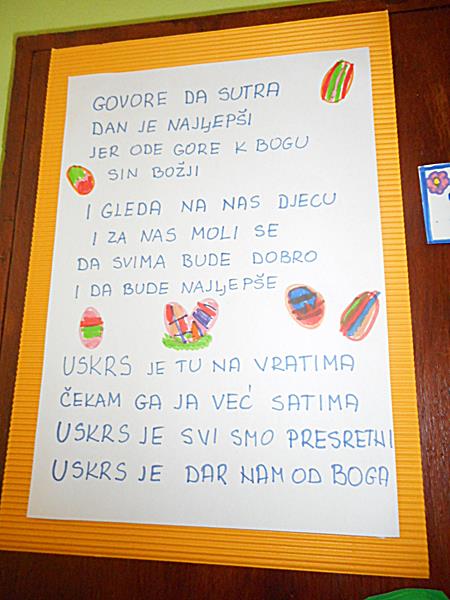 GOVORE DA SUTRA
DAN JE NAJLJEPŠI
JER ODE GORE K BOGU
SIN BOŽJI
I GLEDA NA NAS DJECU
I ZA NAS MOLI SE
DA SVIMA BUDE DOBRO
I DA BUDE NAJLJEPŠE
USKRS JE TU NA VRATIMA
ČEKAM GA JA VEĆ SATIMA
USKRS JE SVI SMO PRESRETNI
USKRS JE DAR NAM OD BOGA